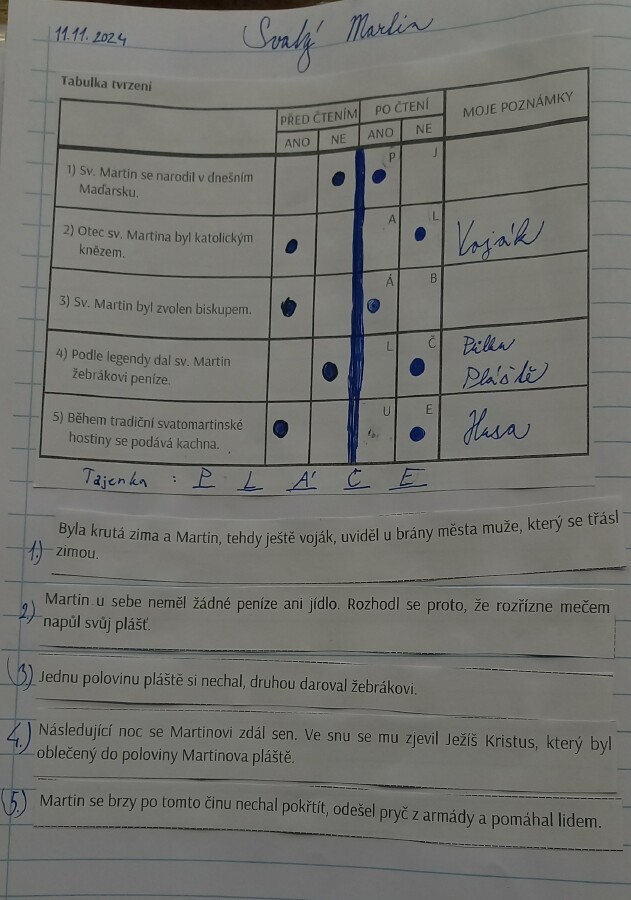 11.11.2024 Svatý Martin
Tabulka tvrzení
PŘED ČTENÍM PO ČTENÍ MOJE POZNÁMKY
ANO NE ANO NE
1) Sv. Martin se narodil v dnešním P J
Maďarsku.
2) Otec sv. Martina byl katolickým A L Voják
knězem.
3) Sv. Martin byl zvolen biskupem. Á B
4) Podle legendy dal sv. Martin L Č Půlku
žebrákovi peníze. Pláště
5) Během tradiční svatomartinské U E Husa
hostiny se podává kachna.
Tajenka : P L Á Č E
1.) Byla krutá zima a Martin, tehdy ještě voják, uviděl u brány města muže, který se třásl
zimou.
2.) Martin u sebe neměl žádné peníze ani jídlo. Rozhodl se proto, že rozřízne mečem
napůl svůj plášť.
3.) Jednu polovinu pláště si nechal, druhou daroval žebrákovi.
4.) Následující noc se Martinovi zdál sen. Ve snu se mu zjevil Ježíš Kristus, který byl
oblečený do poloviny Martinova pláště.
5.) Martin se brzy po tomto činu nechal pokřtít, odešel pryč z armády a pomáhal lidem.